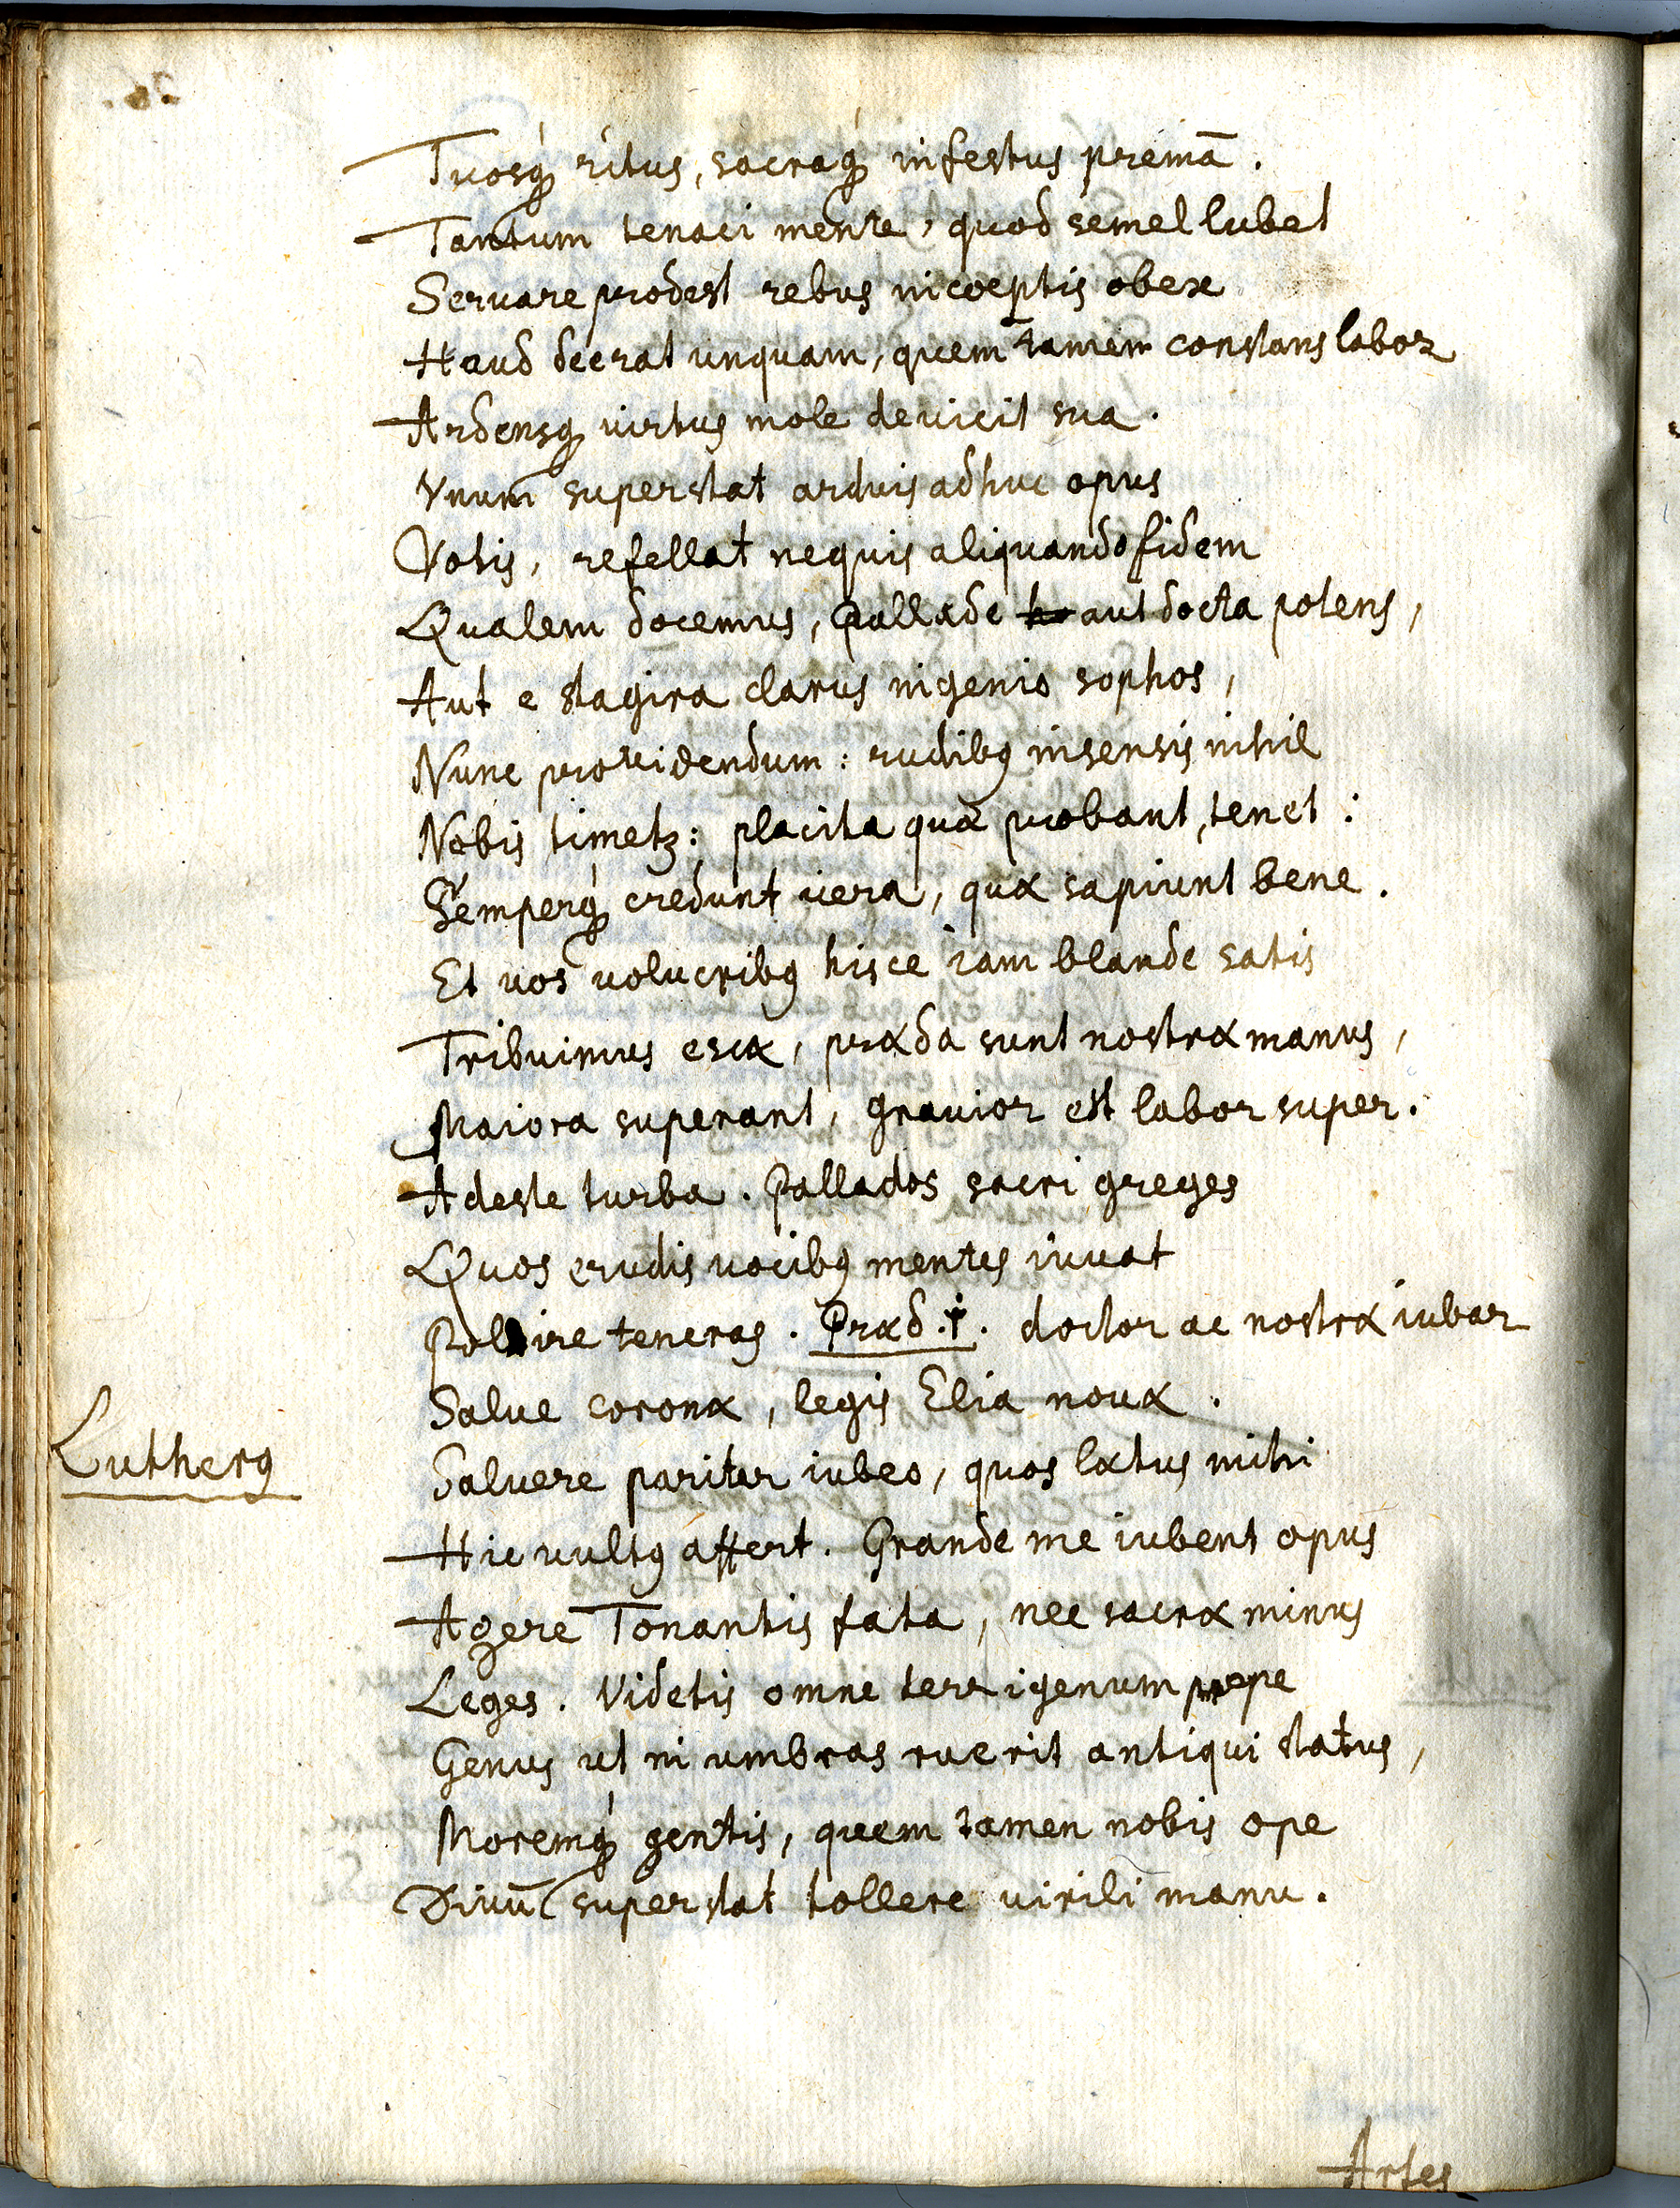 Tuosq́ ritus, sacraq́ infestus premā.
Tantum tenaci mente, quod semel lubet
Servare prodest rebus incoeptis obex
Haud deerat unquam, quem tamen constans labor
Ardensq virtus mole devicit sua.
Vnum superstat arduis adhuc opus
Votis, refellat nequis aliquando fidem
Qualem docemus, Pallade aut docta potens,
Aut e stagira clarus ingenio sophos,
Nunc providendum: rudibꝰ insensis nihil
Nobis timetꝫ: placita quæ probant, tenet:
Semperq́ credunt vera, quæ sapiunt bene.
Et vos volucribꝰ hisce iam blande satis
Tribuimus escæ, præda sunt nostræ manus,
Maiora superant, gravior est labor super.
Adeste turba. Pallados sacri greges
Quos erudis vocibꝰ mentes iuvat
Polire teneras. Præd. i. doctor ac nostræ iubar
Salue coronæ, legis Elia nouæ.
Lutherꝰ
Saluere pariter iubeo, quos lætus mihi
Hic vultꝰ affert. Grande me iubent opus
Agere Tonantis fata, nec sacræ minus
Leges. Videtis omne terrigenum prope
Genus ut in umbras ruerit antiqui status,
Moremq́ gentis, quem tamen nobis ope
Divū superstat tollere virili manu.
Artes